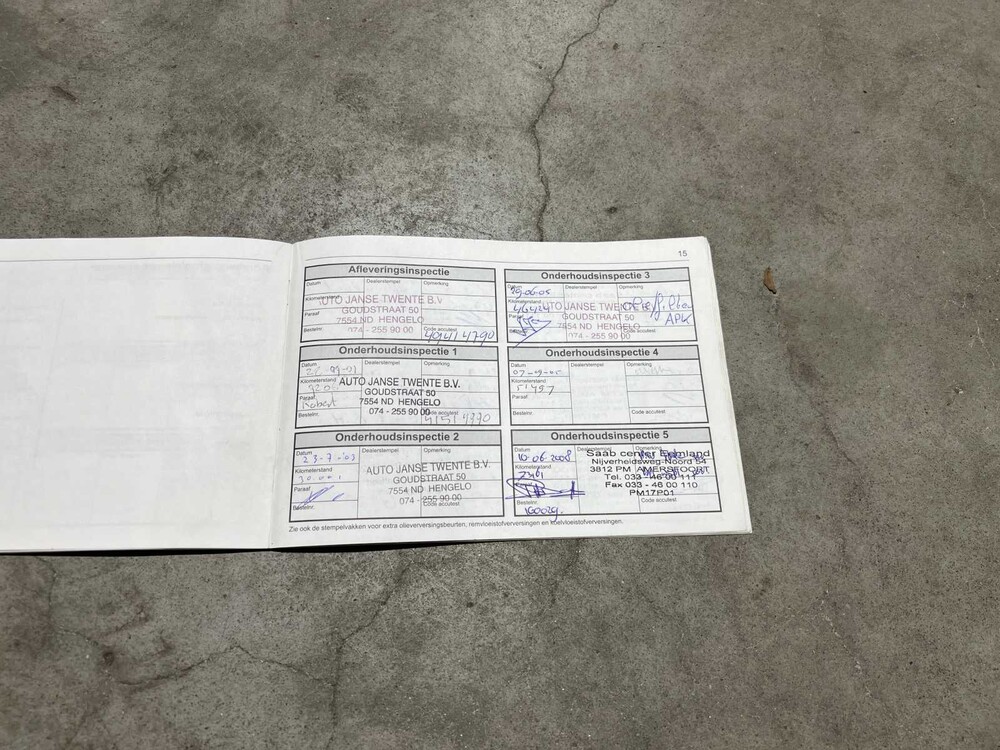 15
Afleveringsinspectie
Datum Dealerstempel Opmerking
Kilometerstand
AUTO JANSE TWENTE B.V.
GOUDSTRAAT 50
Paraaf
7554 ND HENGELO
Bestelnr. 074 - 255 90 00 Code accutest
Onderhoudsinspectie 1
Datum Dealerstempel Opmerking
Kilometerstand
AUTO JANSE TWENTE B.V.
GOUDSTRAAT 50
Paraaf
7554 ND HENGELO
Robert
Bestelnr. 074 - 255 90 00 Code accutest
Onderhoudsinspectie 2
Datum Dealerstempel Opmerking
23-7-'03
Kilometerstand
AUTO JANSE TWENTE B.V.
30.001
GOUDSTRAAT 50
Paraaf
7554 ND HENGELO
Bestelnr. 074 - 255 90 00 Code accutest
Onderhoudsinspectie 3
Datum Dealerstempel Opmerking
Kilometerstand
AUTO JANSE TWENTE
GOUDSTRAAT 50
APK
Paraaf
7554 ND HENGELO
Bestelnr. 074 - 255 90 00
Onderhoudsinspectie 4
Datum Dealerstempel Opmerking
Kilometerstand
51497
Paraaf
Bestelnr. Code accutest
Onderhoudsinspectie 5
Datum Dealerstempel Opmerking
Saab center Eemland
10-06-2008
Nijverheidsweg-Noord 54
Kilometerstand
3812 PM AMERSFOORT
Tel. 033 - 46 00 111
Paraaf
Fax 033 - 46 00 110
PM17P01
Bestelnr. Code accutest
Zie ook de stempelvakken voor extra olieverversingsbeurten, remvloeistofverversingen en koelvloeistofverversingen.